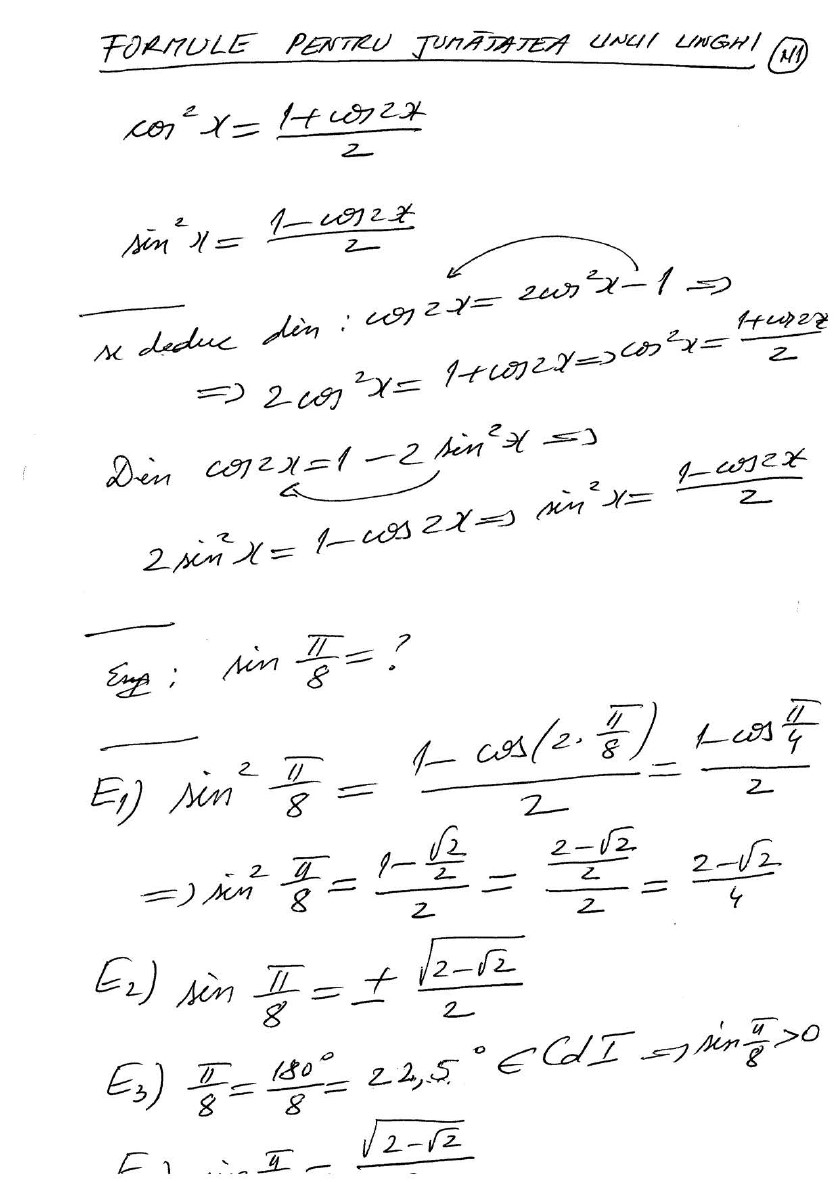 FORMULE PENTRU JUMĂTATEA UNUI UNGHI M1
cos²x = (1+cos2x)/2
sin²x = (1-cos2x)/2
se deduc din : cos2x = 2cos²x-1 =>
=> 2cos²x = 1+cos2x => cos²x = (1+cos2x)/2
Din cos2x = 1-2sin²x =>
2sin²x = 1-cos2x => sin²x = (1-cos2x)/2
: sin π/8 = ?
E₁) sin² π/8 = (1-cos(2·π/8))/2 = (1-cos π/4)/2
=> sin² π/8 = (1-√2/2)/2 = ((2-√2)/2)/2 = (2-√2)/4
E₂) sin π/8 = ± √(2-√2)/2
E₃) π/8 = 180°/8 = 22,5° ∈ CdI => sin π/8 > 0
√(2-√2)